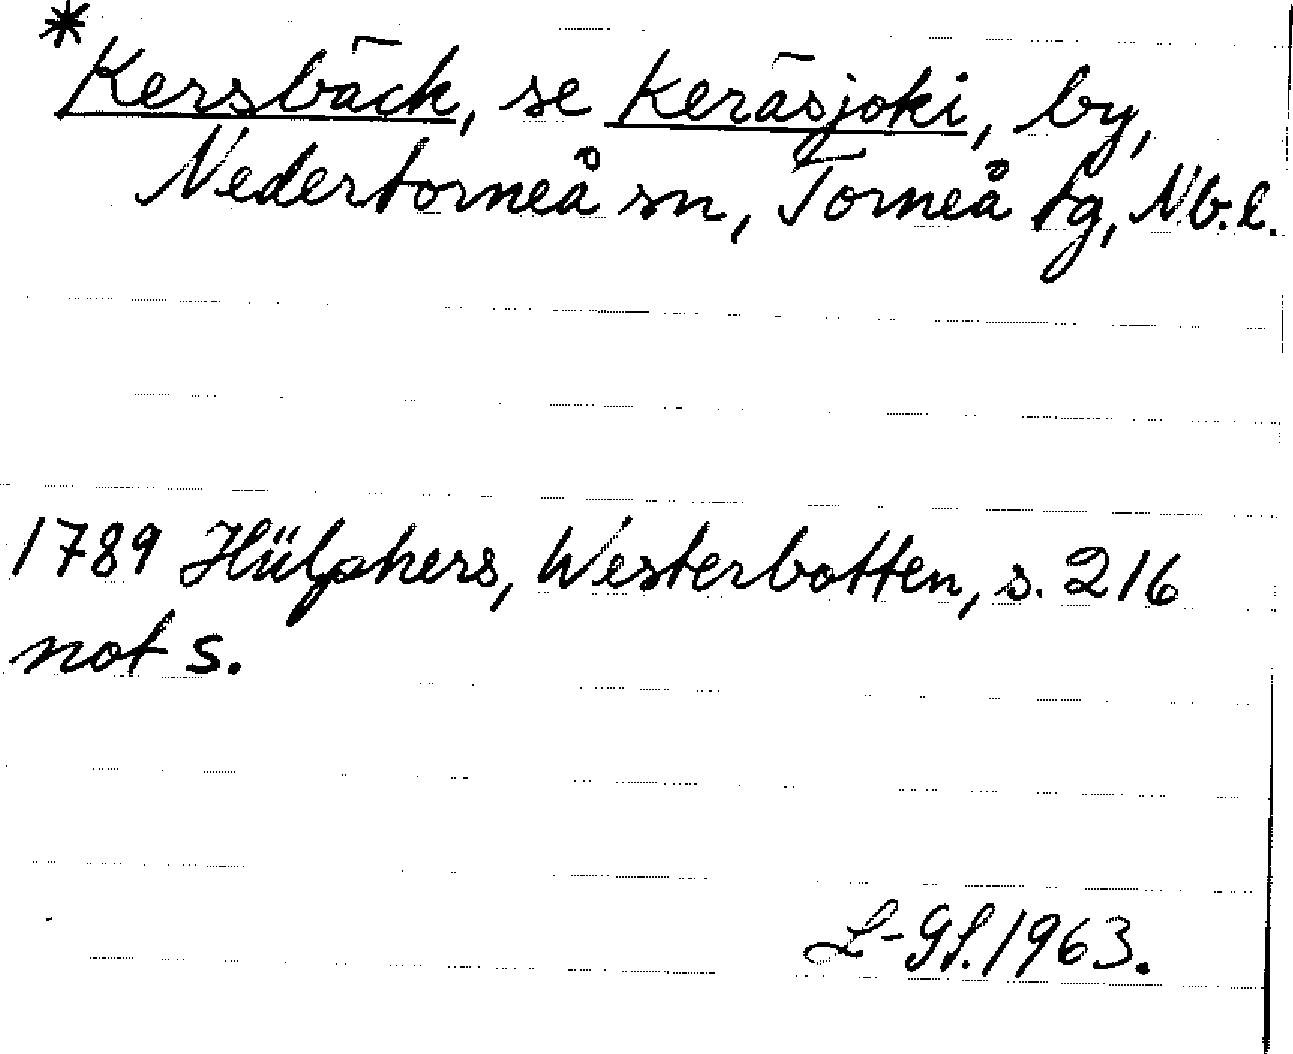 *Kersbäck, se Keräsjoki, by,
Nedertorneå sn, Torneå tg, Nb.l.
1789 Hülphers, Westerbotten, s. 216
not s.
L-GL.1963.